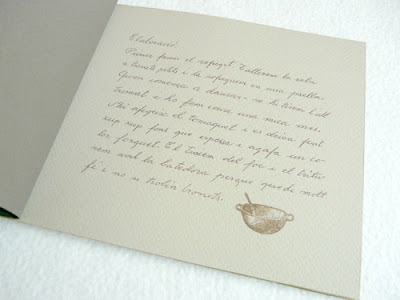 Elaboració:
Primer farem el sofregit. Tallarem la ceba
a trossets petits i la sofregirem en una paella.
Quan comença a daurar-se hi tirem l'all
trossejat i ho fem coure una mica més.
afegirem el tomaquet i es deixa fent
xup xup fins que espessi i agafa un co-
lor fosquet. El traiem del foc i el tritu-
rem amb la batedora perque quedi molt
fi i no es trobin trossets.